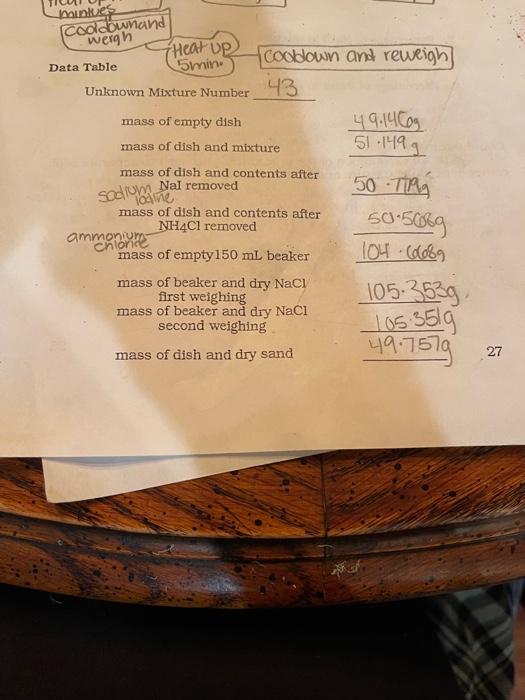 minutes
cooldown and
weigh
Heat up
5min.
Cooldown and reweigh
Data Table
Unknown Mixture Number 43
mass of empty dish 49.146g
mass of dish and mixture 51.149g
mass of dish and contents after
NaI removed 50.779g
sodium
Iodine
mass of dish and contents after
NH4Cl removed 50.508g
ammonium
chloride
mass of empty150 mL beaker 104.668g
mass of beaker and dry NaCl
first weighing 105.353g
mass of beaker and dry NaCl
second weighing 105.351g
mass of dish and dry sand 49.757g
27